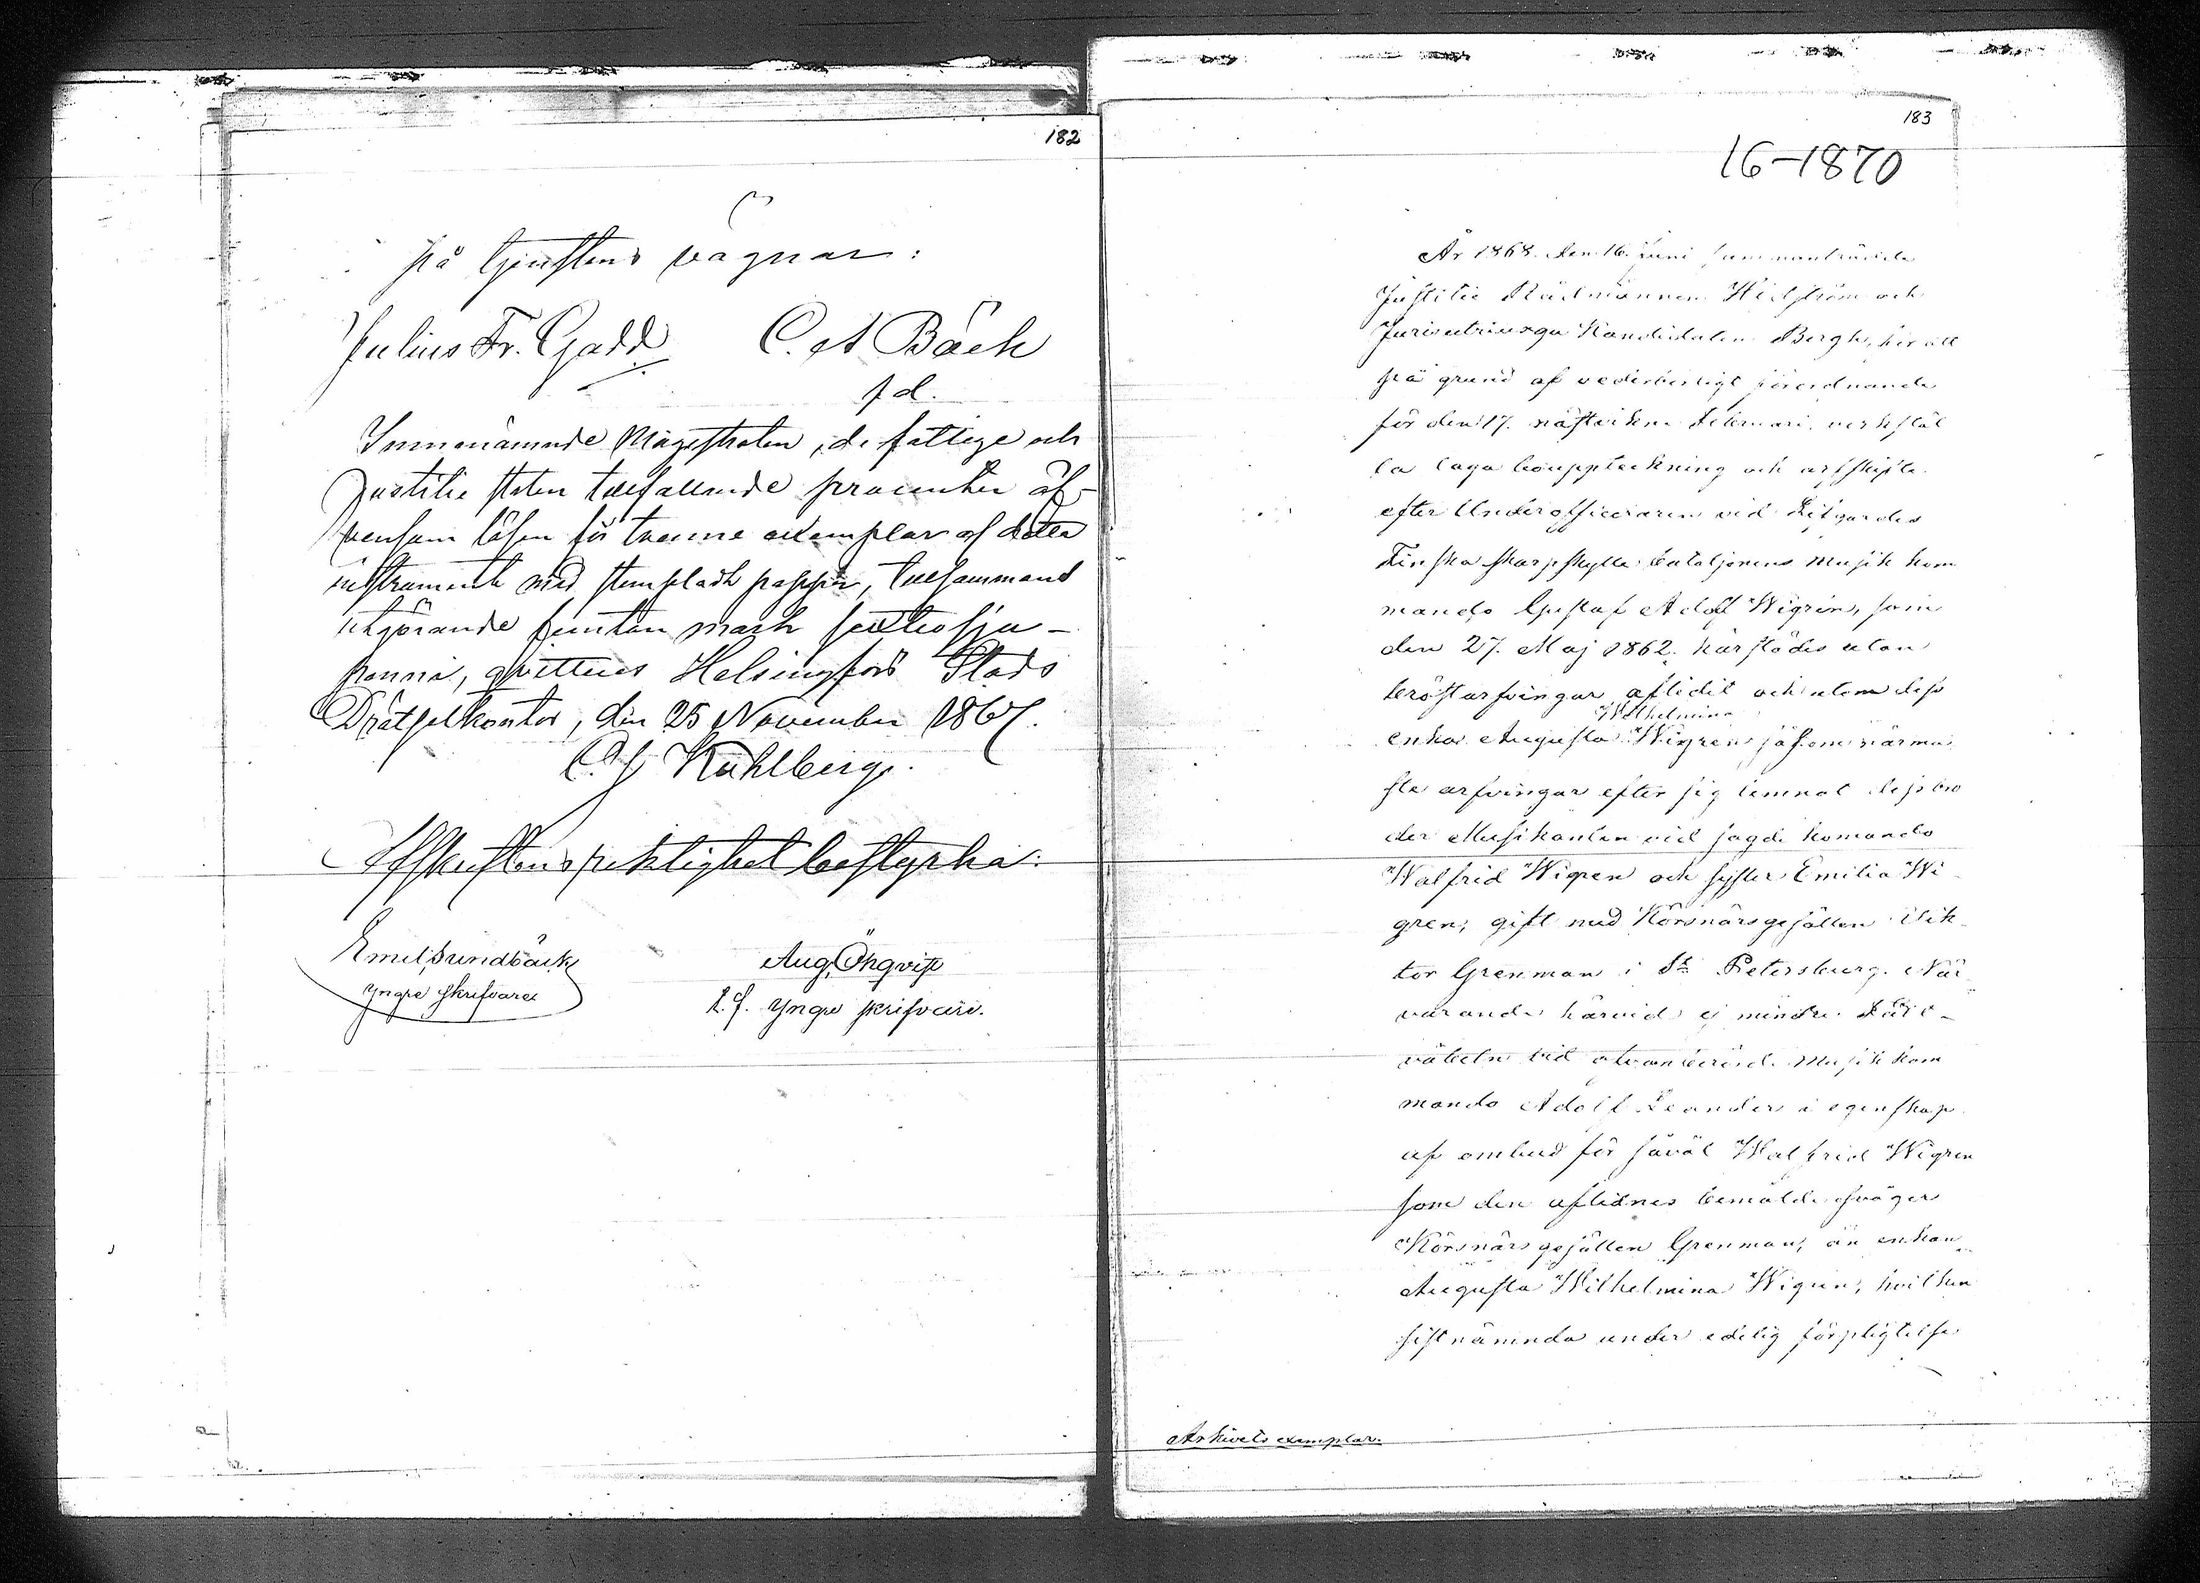 182
på tjenstens vägnar:
Julius Fr. Gadd C. A Bäck
f d.
Innenämnde Magistraten, de fattige och
Justitie staten tillfallande procenter äf-
vensom lösen för trenne exemplar af detta
instrument med stempladt papper, tillsammans
utgörande femton mark sextiosju
penni, qvitteras Helsingfors Stads
Drätselkontor, den 25 November 1867.
C. J Kuhlberg.
Afskriftens riktighet bestyrka:
Emil Sundbäck Aug. Öhqvist
Yngre skrifvare t. f. yngre skrifvare.
183
16-1870
År 1868 den 16. Juni sammanträdde
Justitie Rådmannen Widström och
Jurisutriusqu Kandidaten Bergh, för att
på grund af vederbörligt förordnande
för den 17. nästvikne Februari verkstäl
la laga bouppteckning och arfskifte
efter Underofficeraren vid Lifgardes
Finska skarpskytte bataljonens musik kom
mando Gustaf Adolf Wigren, som
den 27. Maj 1862. härstädes utan
bröstarfvingar aflidit och utom dess
Wilhelmina
enka Augusta Wigren såsom närma
ste arfvingar efter sig lemnat dess bro
der Musikanten vid sagde komando
Walfrid Wigren och syster Emilia Wi
gren, gift med Körsnärsgesällen Vik
tor Grenman i St Petersburg. När
varande härvid ej mindre Fält-
väbeln vid ofvanberörd. musik kom
mando Adolf Leander i egenskap
af ombud för såväl Walfrid Wigren
som den aflidnes bemälde svåger
Körsnärsgesällen Grenman, än enkan
Augusta Wilhelmina Wigren, hvilken
sistnämnda under edelig förpligtelse
Arkivets exemplar.